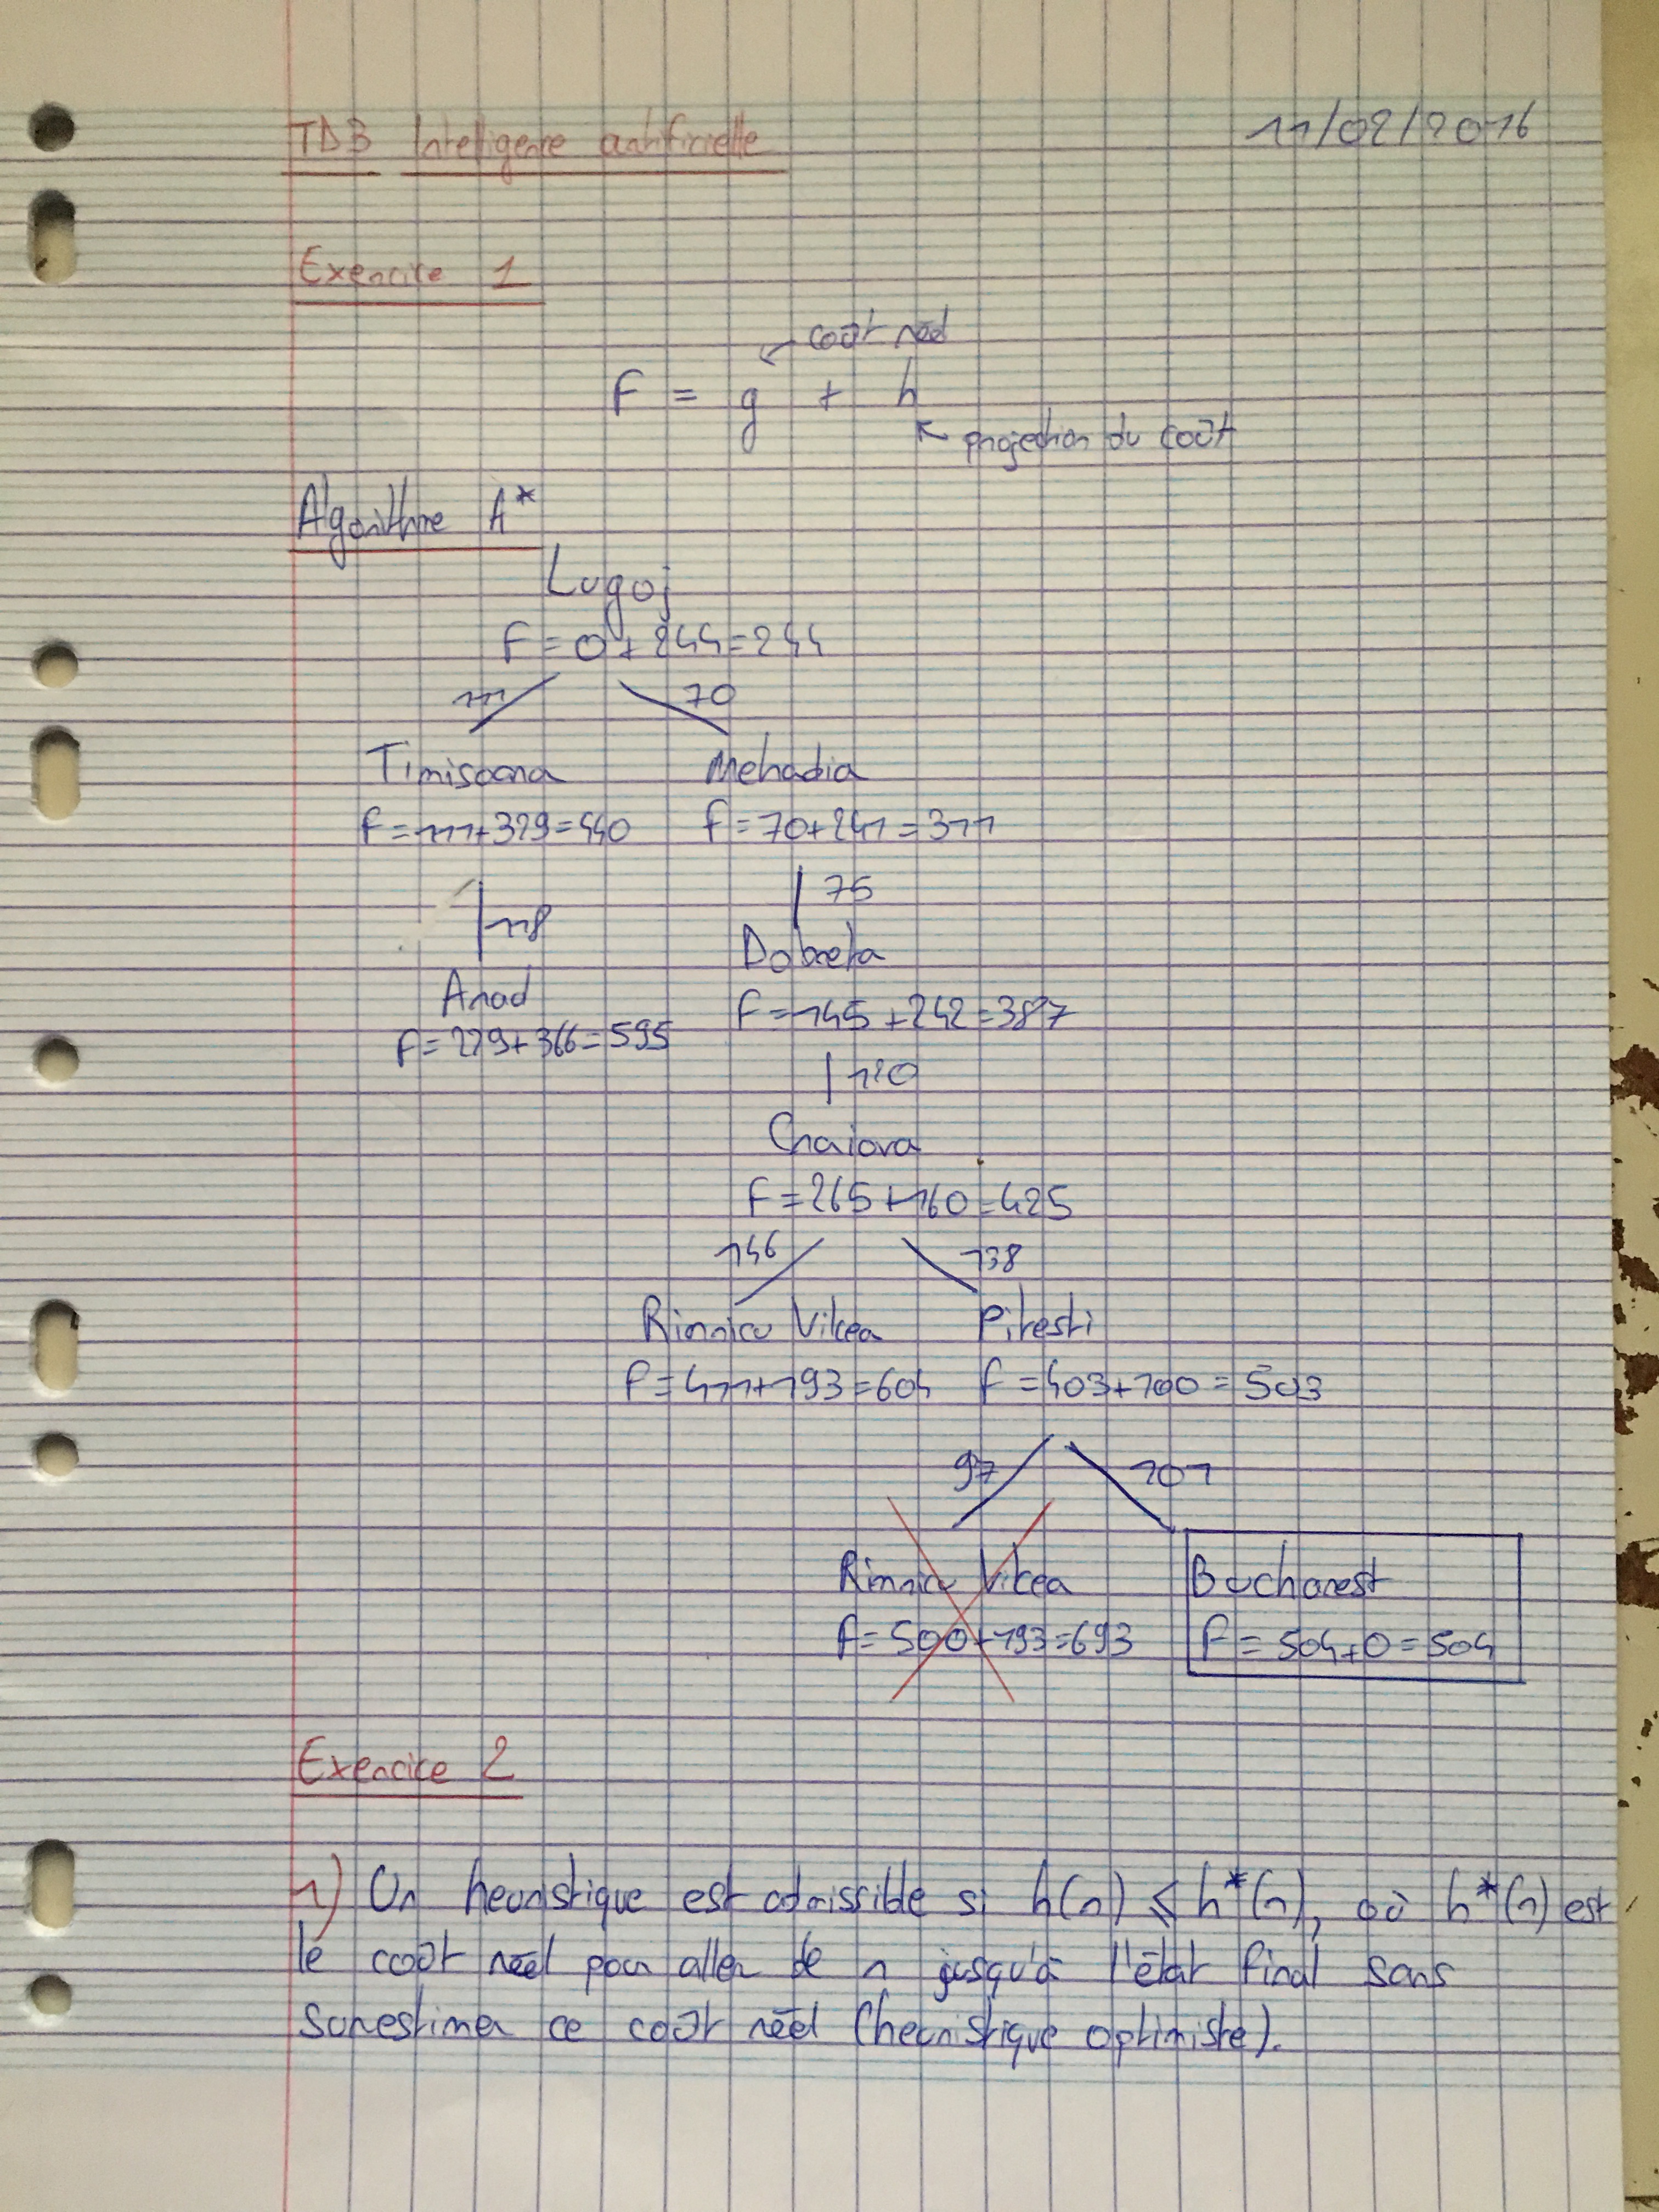 TD3 Intelligence artificielle
11/02/2016
Exercice 1
coût réel
F = g + h
projection du coût
Algorithme A*
Lugoj
F = 0 + 244 = 244
111 70
Timisoara Mehadia
F = 111 + 329 = 440 F = 70 + 241 = 311
118 75
Arad Dobreta
F = 229 + 366 = 595 F = 145 + 242 = 387
120
Craiova
F = 265 + 160 = 425
146 138
Rimnicu Vilcea Pitesti
F = 411 + 193 = 604 F = 403 + 100 = 503
97 101
Rimnicu Vilcea Bucharest
F = 500 + 193 = 693 F = 504 + 0 = 504
Exercice 2
1) Un heuristique est admissible si h(n) ⩽ h*(n), où h*(n) est
le coût réel pour aller de n jusqu'à l'état final sans
surestimer ce coût réel (heuristique optimiste).